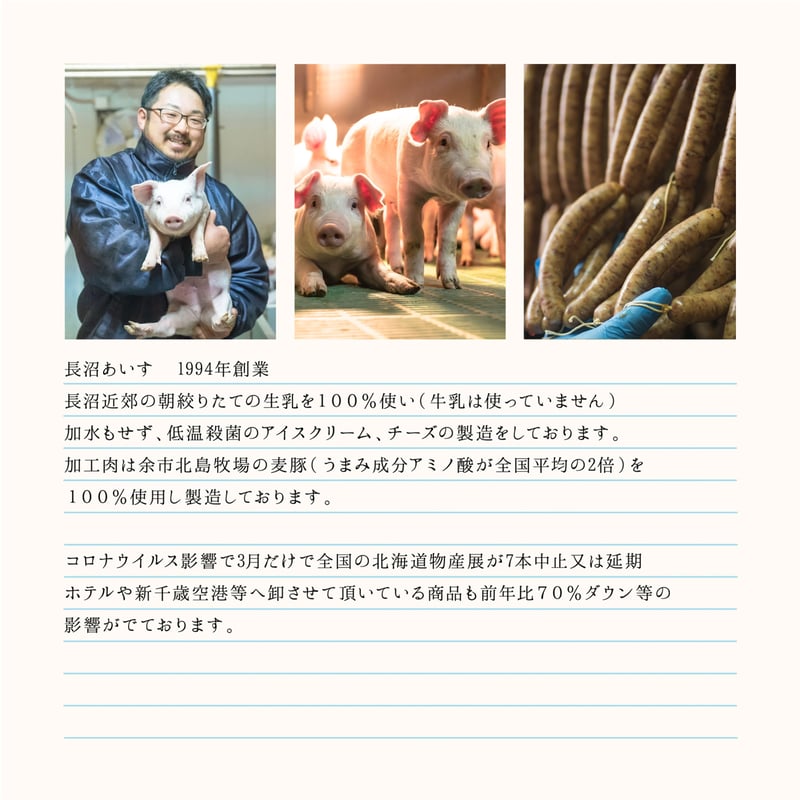 長沼あいす　1994年創業
長沼近郊の朝絞りたての生乳を１００％使い（牛乳は使っていません）
加水もせず、低温殺菌のアイスクリーム、チーズの製造をしております。
加工肉は余市北島牧場の麦豚（うまみ成分アミノ酸が全国平均の2倍）を
１００％使用し製造しております。
コロナウイルス影響で3月だけで全国の北海道物産展が7本中止又は延期
ホテルや新千歳空港等へ卸させて頂いている商品も前年比７０％ダウン等の
影響がでております。